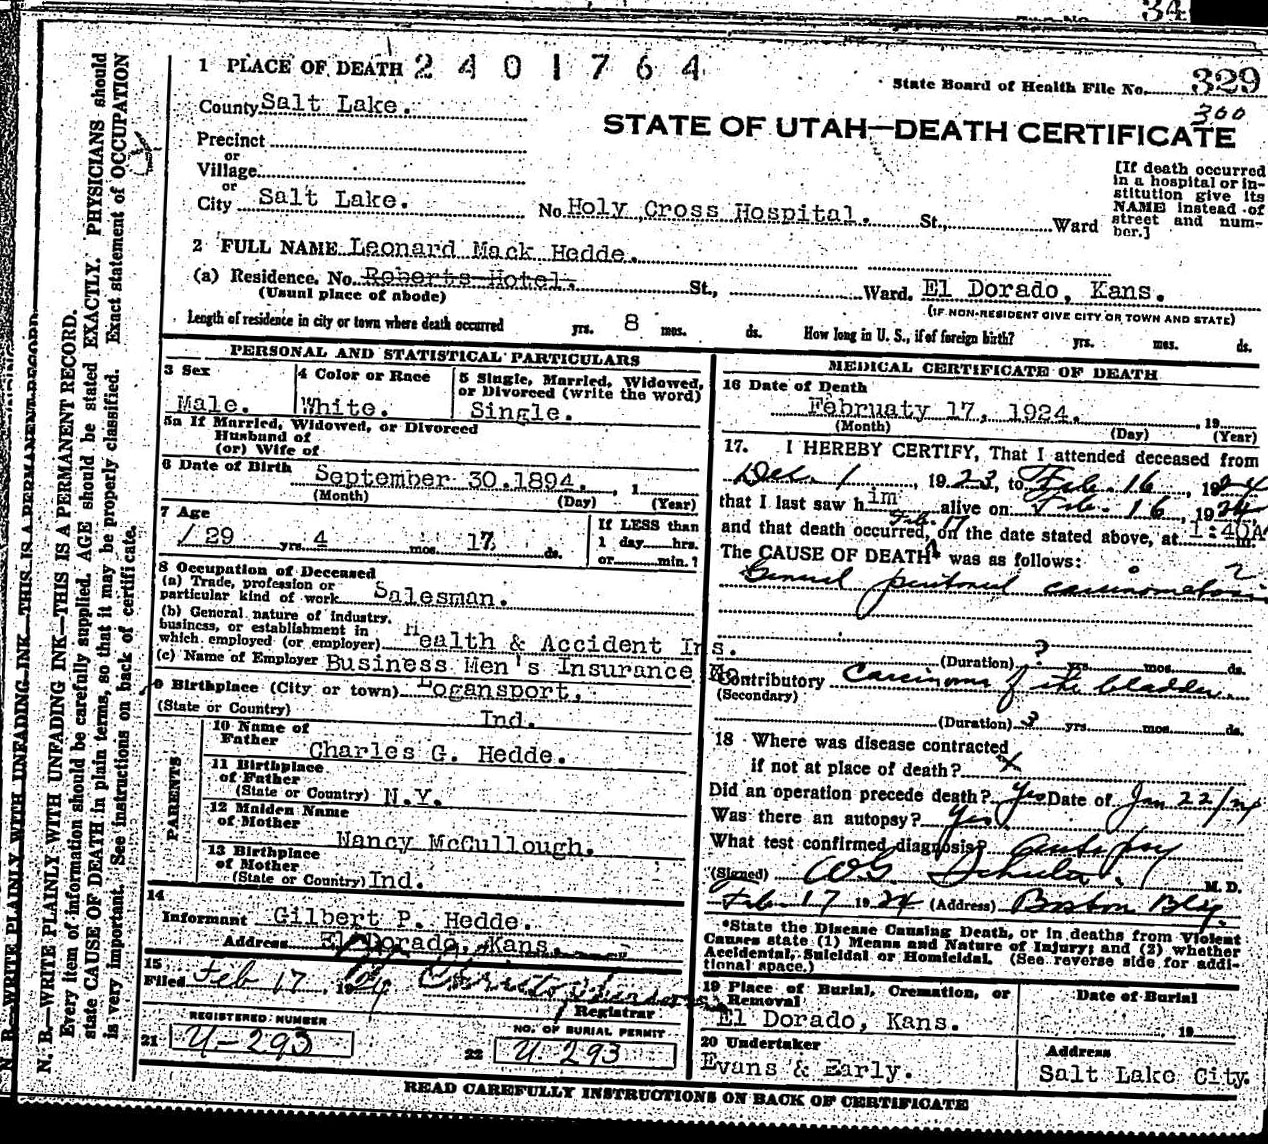 34
1 PLACE OF DEATH 2401764
State Board of Health File No. 329
County Salt Lake.
300
STATE OF UTAH—DEATH CERTIFICATE
Precinct
or
Village
or
City Salt Lake. No. Holy Cross Hospital. St., Ward
[If death occurred in a hospital or institution give its NAME instead of street and number.]
2 FULL NAME Leonard Mack Hedde.
(a) Residence. No. Roberts Hotel. St., Ward. El Dorado, Kans.
(Usual place of abode) (IF NON-RESIDENT GIVE CITY OR TOWN AND STATE)
Length of residence in city or town where death occurred yrs. 8 mos. ds. How long in U. S., if of foreign birth? yrs. mos. ds.
PERSONAL AND STATISTICAL PARTICULARS
3 Sex Male.
4 Color or Race White.
5 Single, Married, Widowed, or Divorced (write the word) Single.
5a If Married, Widowed, or Divorced
Husband of
(or) Wife of
6 Date of Birth September 30.1894. , 1
(Month) (Day) (Year)
7 Age 29 yrs. 4 mos. 17 ds.
If LESS than
1 day hrs.
or min.?
8 Occupation of Deceased
(a) Trade, profession or
particular kind of work Salesman.
(b) General nature of industry,
business, or establishment in
which employed (or employer) Health & Accident Ins.
(c) Name of Employer Business Men's Insurance Co.
9 Birthplace (City or town) Logansport,
(State or Country) Ind.
PARENTS
10 Name of
Father Charles G. Hedde.
11 Birthplace
of Father
(State or Country) N.Y.
12 Maiden Name
of Mother Nancy McCullough.
13 Birthplace
of Mother
(State or Country) Ind.
14
Informant Gilbert P. Hedde.
Address El Dorado, Kans.
15
Filed Feb 17, 1924
Registrar
REGISTERED NUMBER
21 U-293
NO. OF BURIAL PERMIT
22 U 293
MEDICAL CERTIFICATE OF DEATH
16 Date of Death
February 17, 1924. , 19
(Month) (Day) (Year)
17. I HEREBY CERTIFY, That I attended deceased from
Dec. 1, 1923, to Feb. 16, 1924
that I last saw him alive on Feb. 16, 1924
Feb. 17
and that death occurred, on the date stated above, at 1:40A m.
The CAUSE OF DEATH* was as follows:
General peritoneal carcinomatosis
(Duration) ? yrs. mos. ds.
Contributory Carcinoma of the bladder.
(Secondary)
(Duration) ? yrs. mos. ds.
18 Where was disease contracted
if not at place of death? X
Did an operation precede death? Yes Date of Jan 22/24
Was there an autopsy? Yes
What test confirmed diagnosis? autopsy
(Signed) M. D.
Feb. 17 1924 (Address) Boston Bldg.
*State the Disease Causing Death, or in deaths from Violent
Causes state (1) Means and Nature of Injury; and (2) whether
Accidental, Suicidal or Homicidal. (See reverse side for addi-
tional space.)
19 Place of Burial, Cremation, or
Removal
El Dorado, Kans.
Date of Burial
, 19
20 Undertaker
Evans & Early.
Address
Salt Lake City.
READ CAREFULLY INSTRUCTIONS ON BACK OF CERTIFICATE
N. B.—WRITE PLAINLY WITH UNFADING INK—THIS IS A PERMANENT RECORD.
N. B.—WRITE PLAINLY WITH UNFADING INK—THIS IS A PERMANENT RECORD.
Every item of information should be carefully supplied. AGE should be stated EXACTLY. PHYSICIANS should
state CAUSE OF DEATH in plain terms, so that it may be properly classified. Exact statement of OCCUPATION
is very important. See instructions on back of certificate.